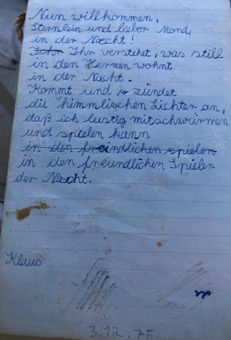 Nun willkommen,
Sternlein und lieber Mond,
in der Nacht!
Ihr verstehet, was still
in den Herzen wohnt
in der Nacht.
Kommt und zündet
die himmlischen Lichter an,
daß ich lustig mitschwirmen
und spielen kann
in den freindlichen spielen
in den freundlichen Spielen
der Nacht.
Klaus
3.12.75